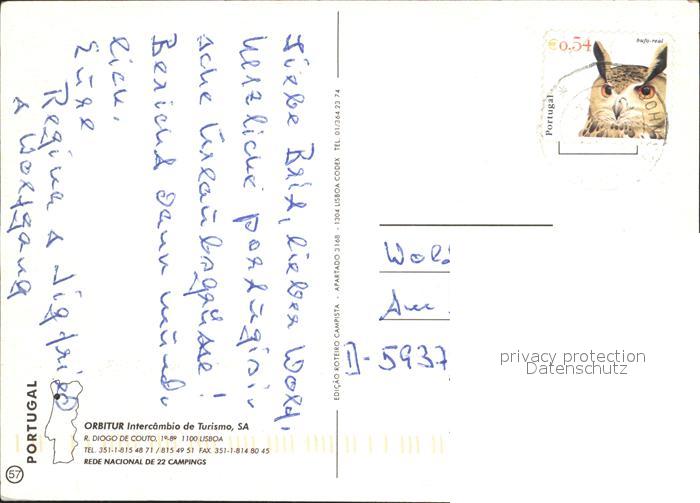 Liebe Brit, lieber Wolf,
herzliche portugisi-
sche Urlaubsgrüsse!
Bericht dann münd-
lich.
Eure
Regina & Sigfried
& Wolfgang
€0,54
bufo-real
Portugal
EDIÇÃO ROTEIRO CAMPISTA - APARTADO 3168 - 1304 LISBOA CODEX TEL. 01/364 23 74
D-5937
privacy protection
Datenschutz
PORTUGAL
ORBITUR Intercâmbio de Turismo, SA
R. DIOGO DE COUTO, 1º-8º 1100 LISBOA
TEL. 351-1-815 48 71 / 815 49 51 FAX. 351-1-814 80 45
REDE NACIONAL DE 22 CAMPINGS
57